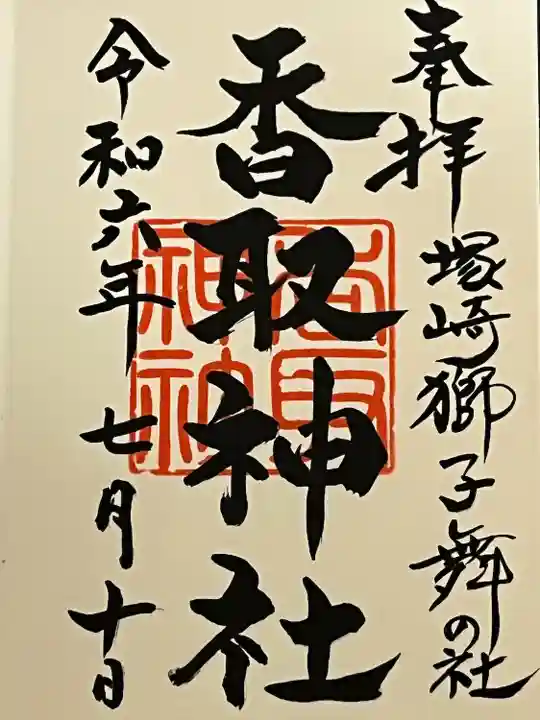 奉拝
塚崎獅子舞の社
香取神社
香取神社
令和六年七月十日